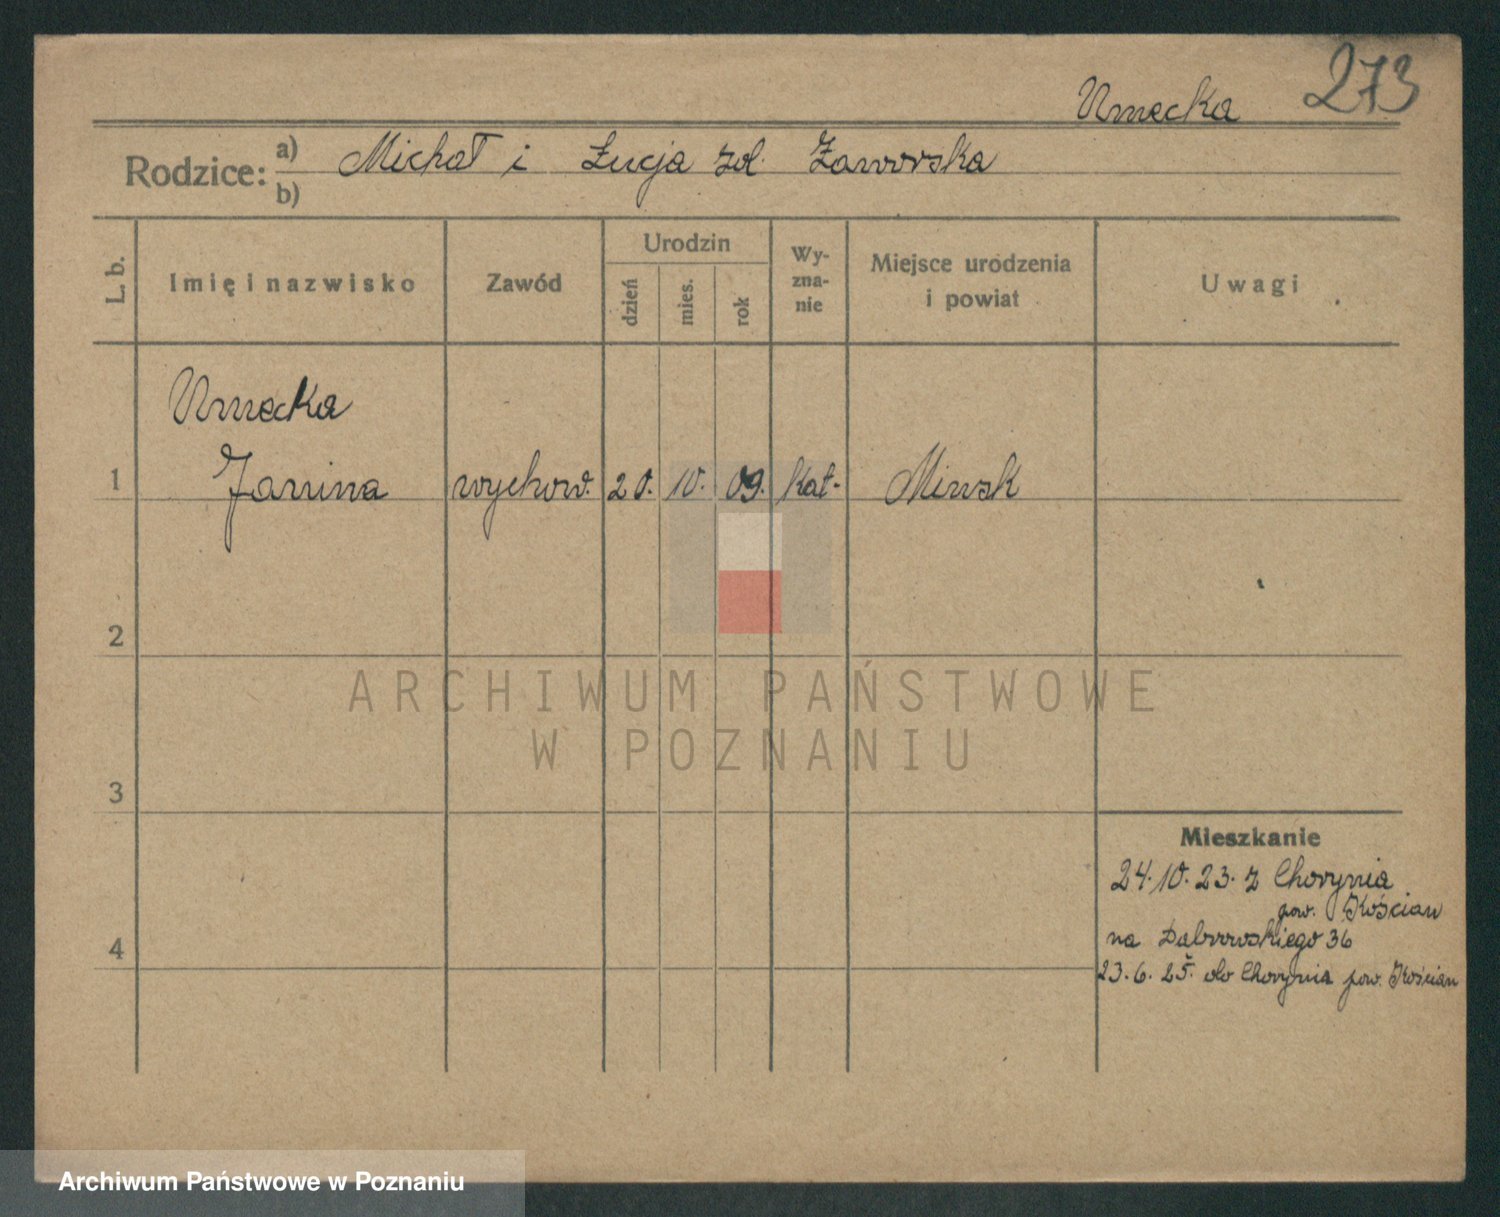 273
Umecka
Rodzice: a) Michał i Łucja zd. Zaworska
b)
L. b.
Imię i nazwisko
Zawód
Urodzin
dzień
mies.
rok
Wy-
zna-
nie
Miejsce urodzenia
i powiat
Uwagi
Umecka
1 Janina wychow. 20. 10. 09. kat. Minsk
2
3
4
Mieszkanie
24.10.23. z Chorynia
pow. Kościan
na Dabrowskiego 36
23.6.25. do Chorynia pow. Kościan
ARCHIWUM PAŃSTWOWE
W POZNANIU
Archiwum Państwowe w Poznaniu